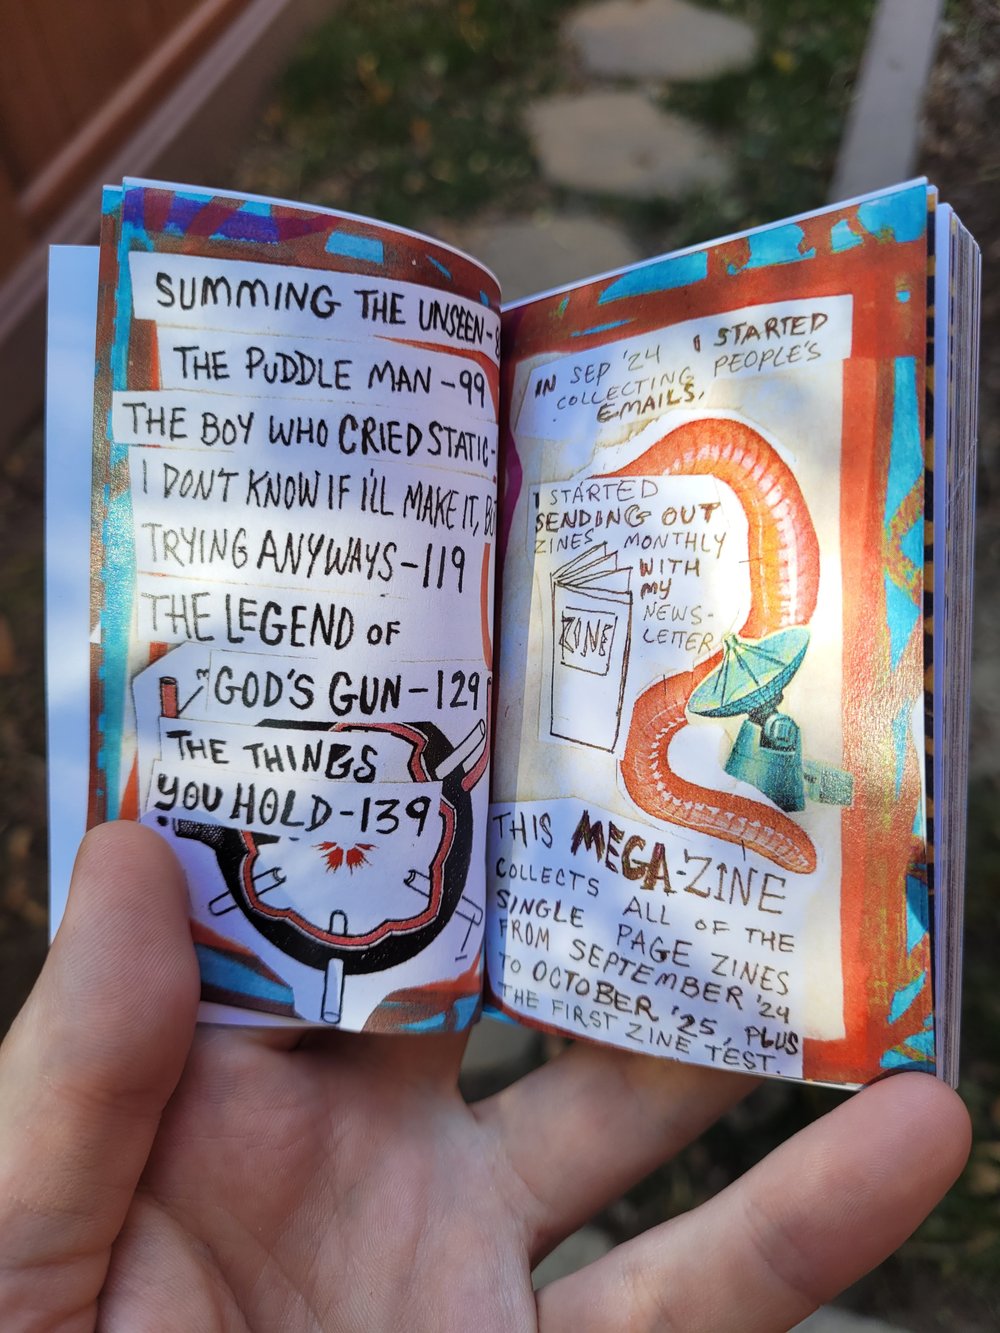 SUMMING THE UNSEEN-
THE PUDDLE MAN-99
THE BOY WHO CRIED STATIC-
I DON'T KNOW IF I'LL MAKE IT,
TRYING ANYWAYS-119
THE LEGEND OF
GOD'S GUN-129
THE THINGS
YOU HOLD-139
IN SEP '24 I STARTED
COLLECTING PEOPLE'S
EMAILS.
I STARTED
SENDING OUT
ZINES MONTHLY
WITH
MY
NEWS-
LETTER
ZINE
THIS MEGA-ZINE
COLLECTS ALL OF THE
SINGLE PAGE ZINES
FROM SEPTEMBER '24
TO OCTOBER '25, PLUS
THE FIRST ZINE TEST.